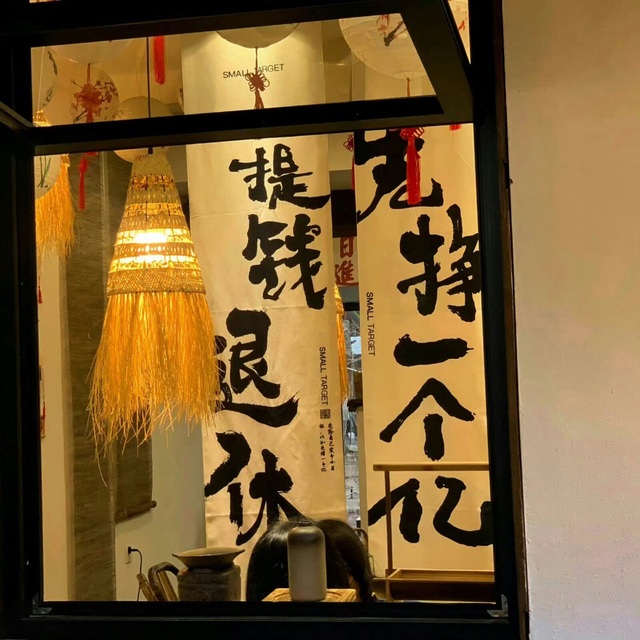 先挣一个亿
SMALL TARGET
日進
提钱退休
SMALL TARGET
SMALL TARGET